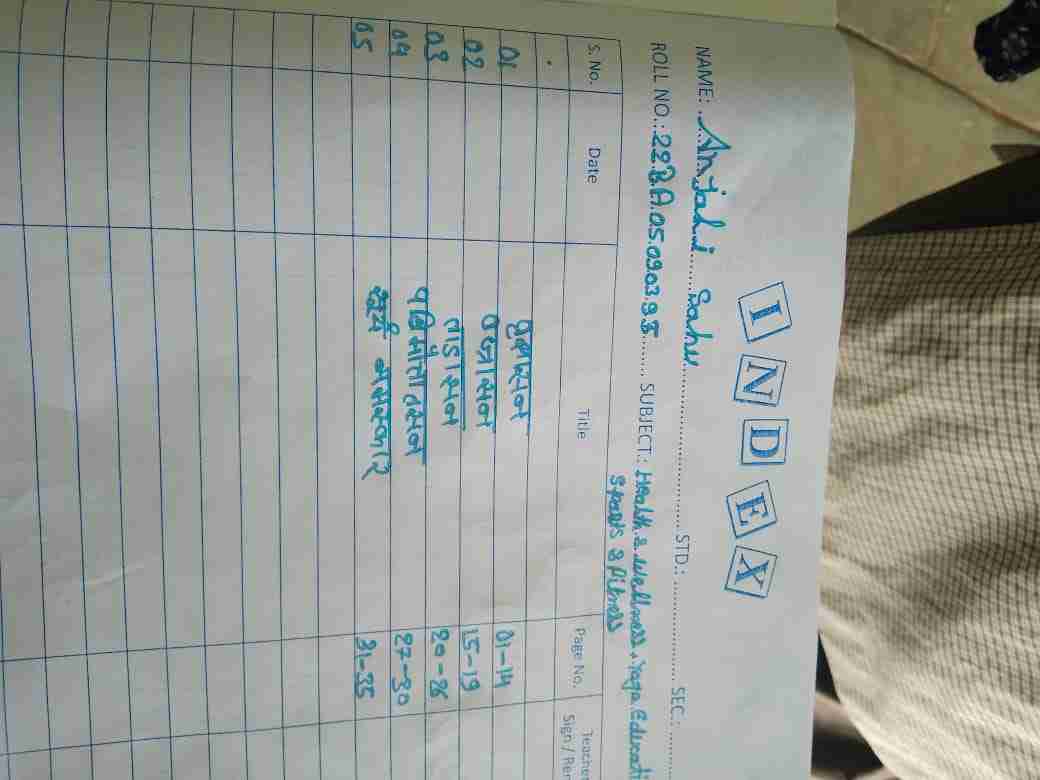 INDEX
NAME: Anjali Sahu STD.: SEC.:
ROLL NO.: 22BA05090395 SUBJECT: Health & Wellness, Yoga Educati
Sports & Fitness
S. No. Date Title Page No. Teacher
Sign / Rem
01 01-14
02 वज्रासन 15-19
03 ताडासन 20-26
04 27-30
05 सूर्य नमस्कार 31-35